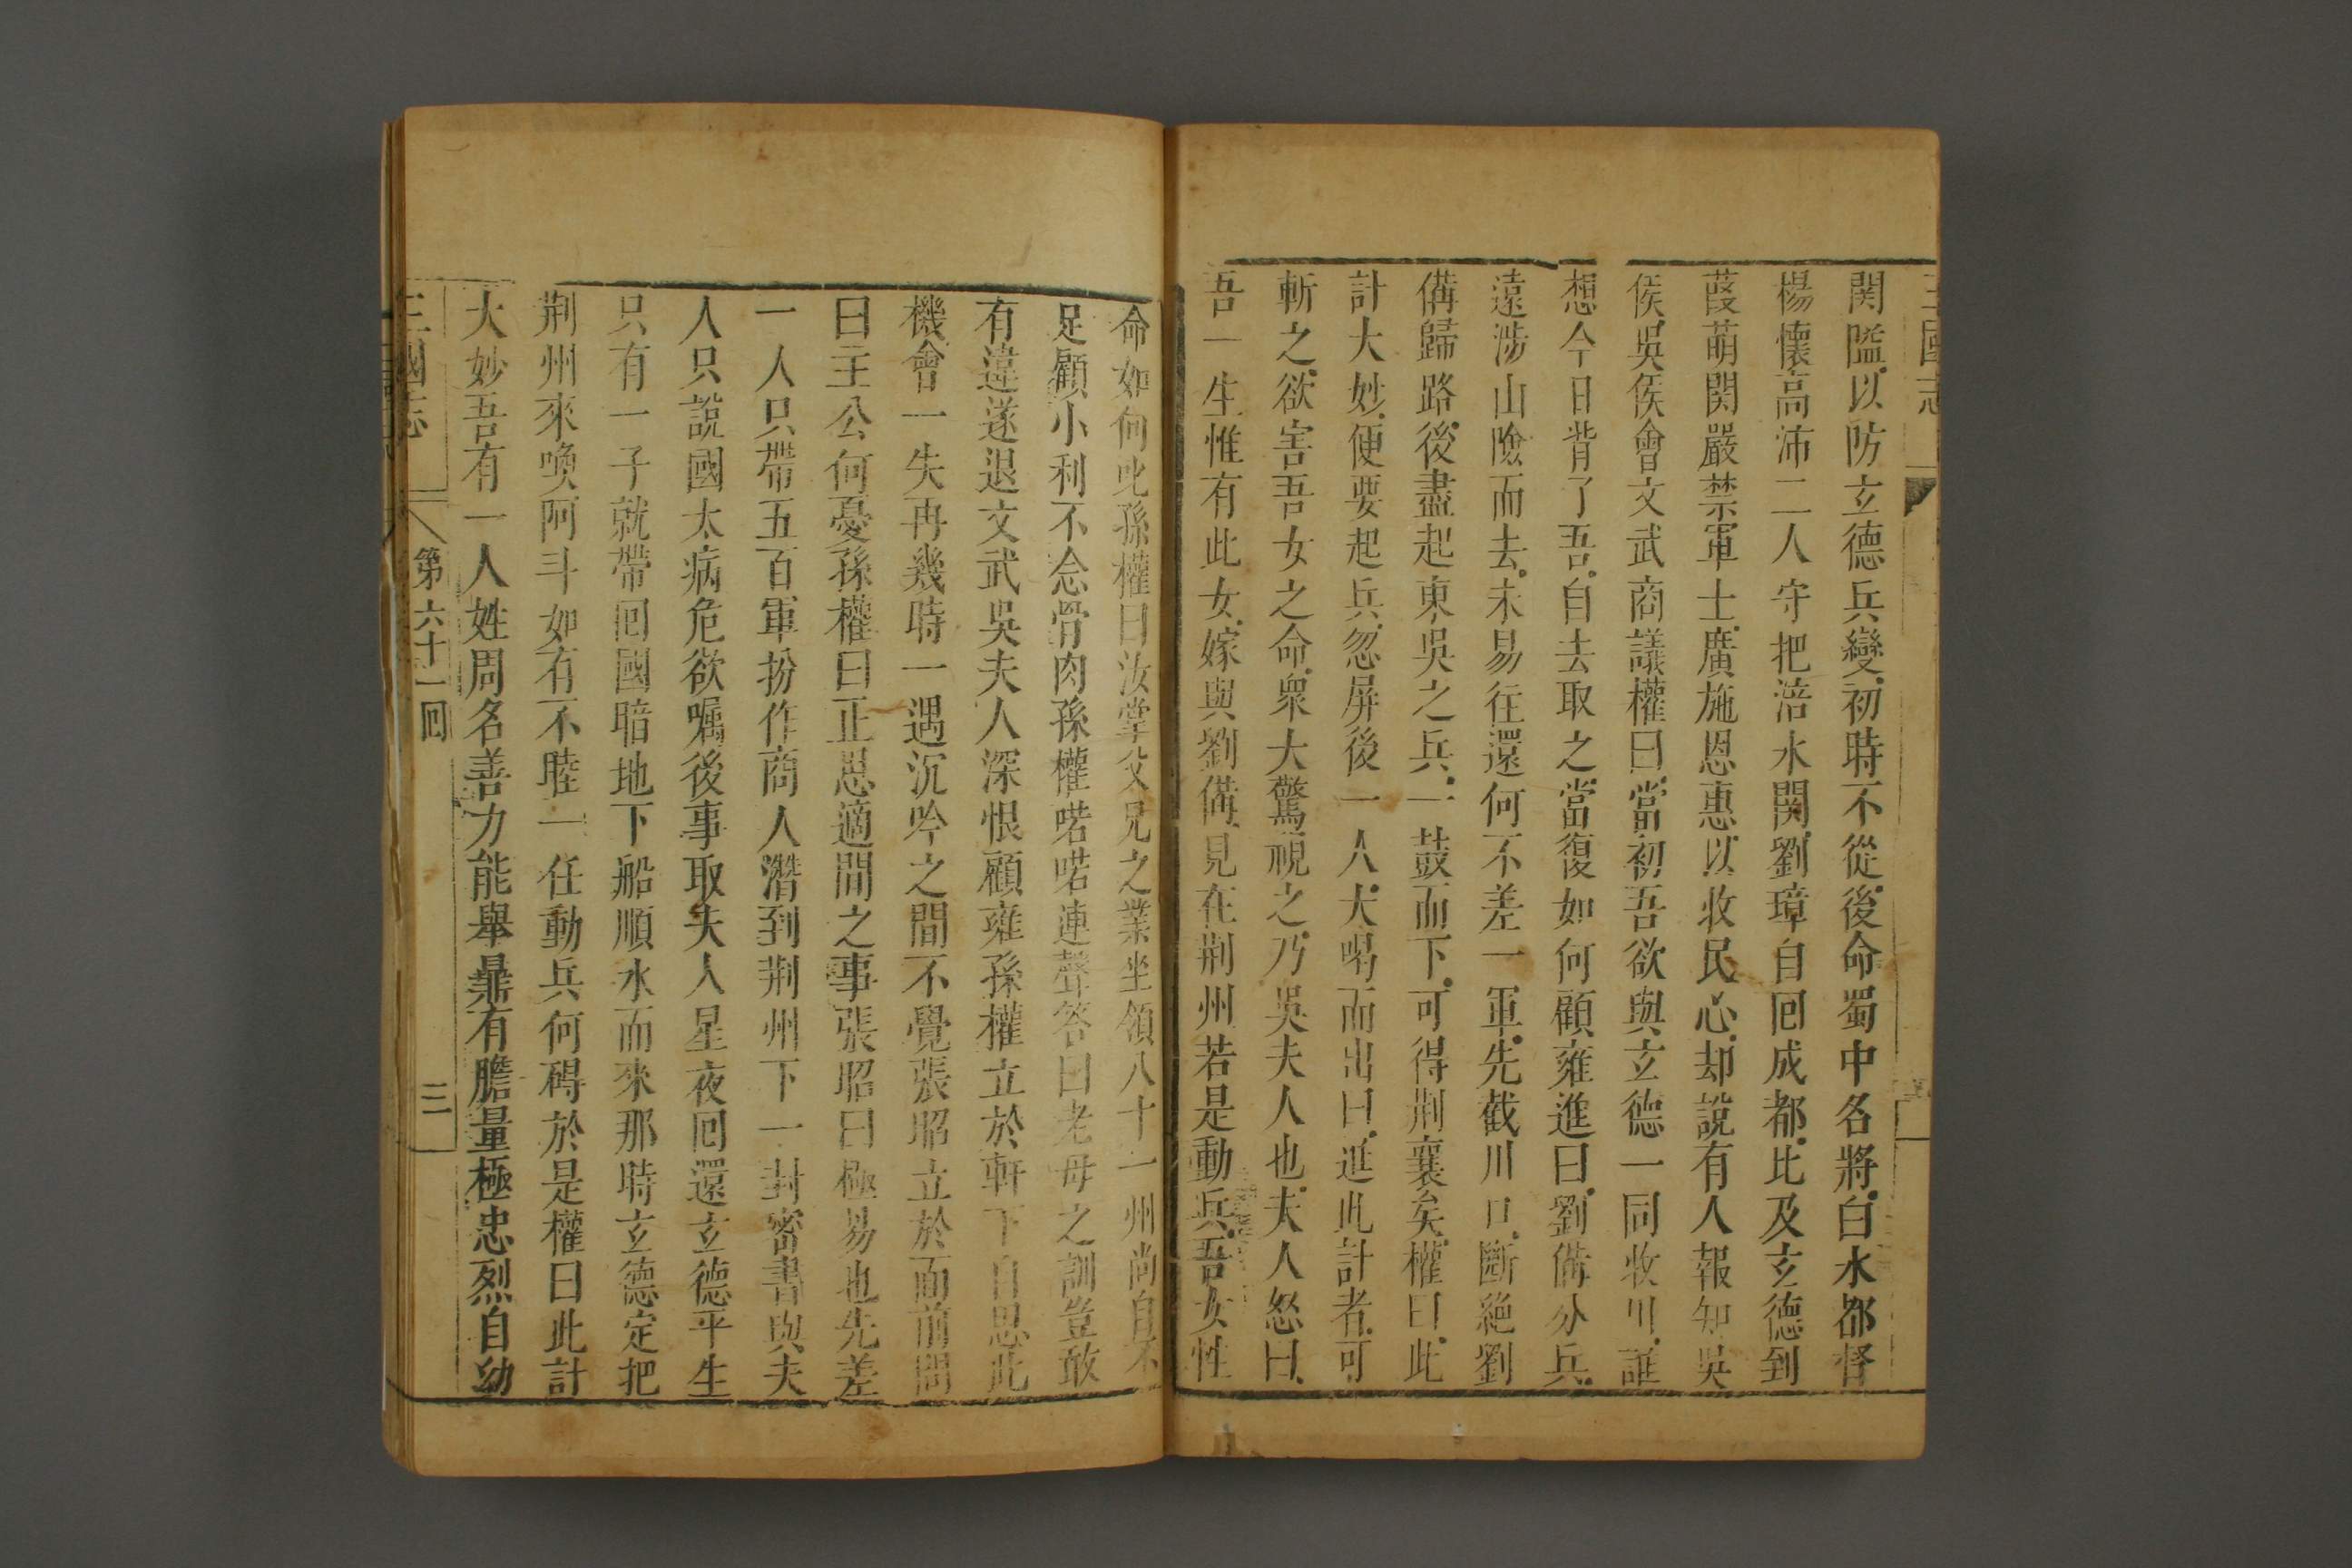 三國志
関隘以防玄德兵變初時不從後命蜀中名將白水都督
楊懷高沛二人守把涪水関劉璋自回成都比及玄德到
葭萌関嚴禁軍士廣施恩惠以收民心却說有人報知吳
侯吳侯會文武商議權曰當初吾欲與玄德一同收川誰
想今日背了吾自去取之當復如何顧雍進曰劉備分兵
遠涉山險而去未易往還何不差一軍先截川口斷絕劉
備歸路後盡起東吳之兵一鼓而下可得荆襄矣權曰此
計大妙便要起兵忽屏後一人大喝而出曰進此計者可
斬之欲害吾女之命衆大驚視之乃吳夫人也夫人怒曰
吾一生惟有此女嫁與劉備見在荆州若是動兵吾女性
命如何叱孫權曰汝掌父兄之業坐領八十一州尚自不
足顧小利不念骨肉孫權喏喏連聲答曰老母之訓豈敢
有違遂退文武吳夫人深恨顧雍孫權立於軒下自思此
機會一失再幾時一遇沉吟之間不覺張昭立於面前問
曰主公何憂孫權曰正思適間之事張昭曰極易也先差
一人只帶五百軍扮作商人潛到荆州下一封密書與夫
人只說國太病危欲囑後事取夫人星夜回還玄德平生
只有一子就帶回國暗地下船順水而來那時玄德定把
荆州來喚阿斗如有不睦一任動兵何碍於是權曰此計
大妙吾有一人姓周名善力能舉鼎有膽量極忠烈自幼
三國志
第六十一回
三